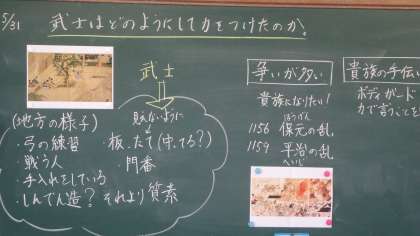 5/31
武士はどのようにして力をつけたのか。
武士
(地方の様子)
・弓の練習
・戦う人
・手入れをしている
・しんでん造? それより質素
見えないように
・板.たて(中.てる?)
・門番
争いが多い
貴族になりたい!
ほうげん
1156 保元の乱
1159 平治の乱
へいじ
貴族の手伝
ボディガード
力で言うことを